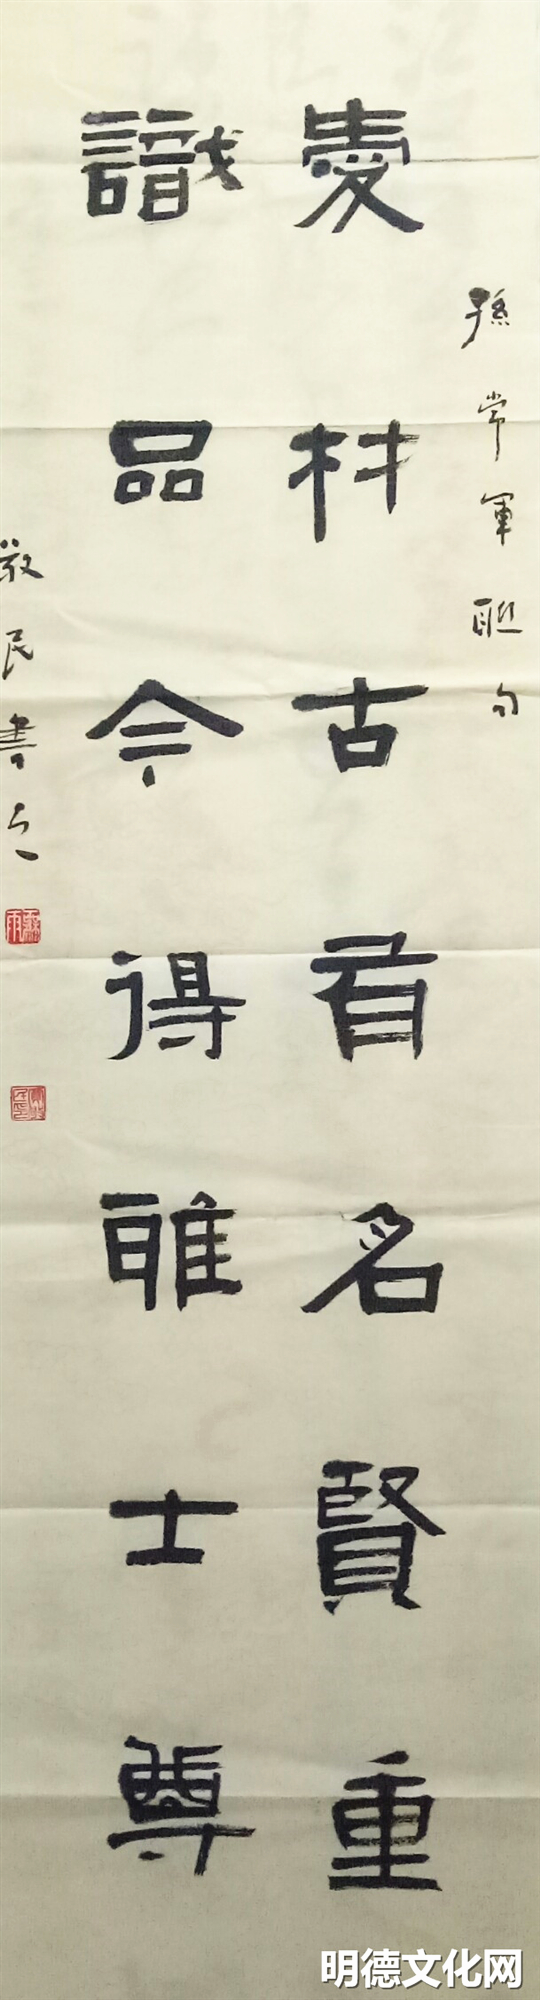 孫常軍聯句
愛材古有名賢重
識品今得雅士尊
嚴民書之
明德文化网